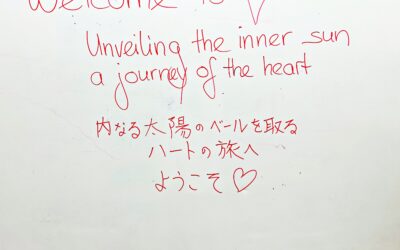 Welcome to
Unveiling the inner sun
a journey of the heart
内なる太陽のベールを取る
ハートの旅へ
ようこそ♡